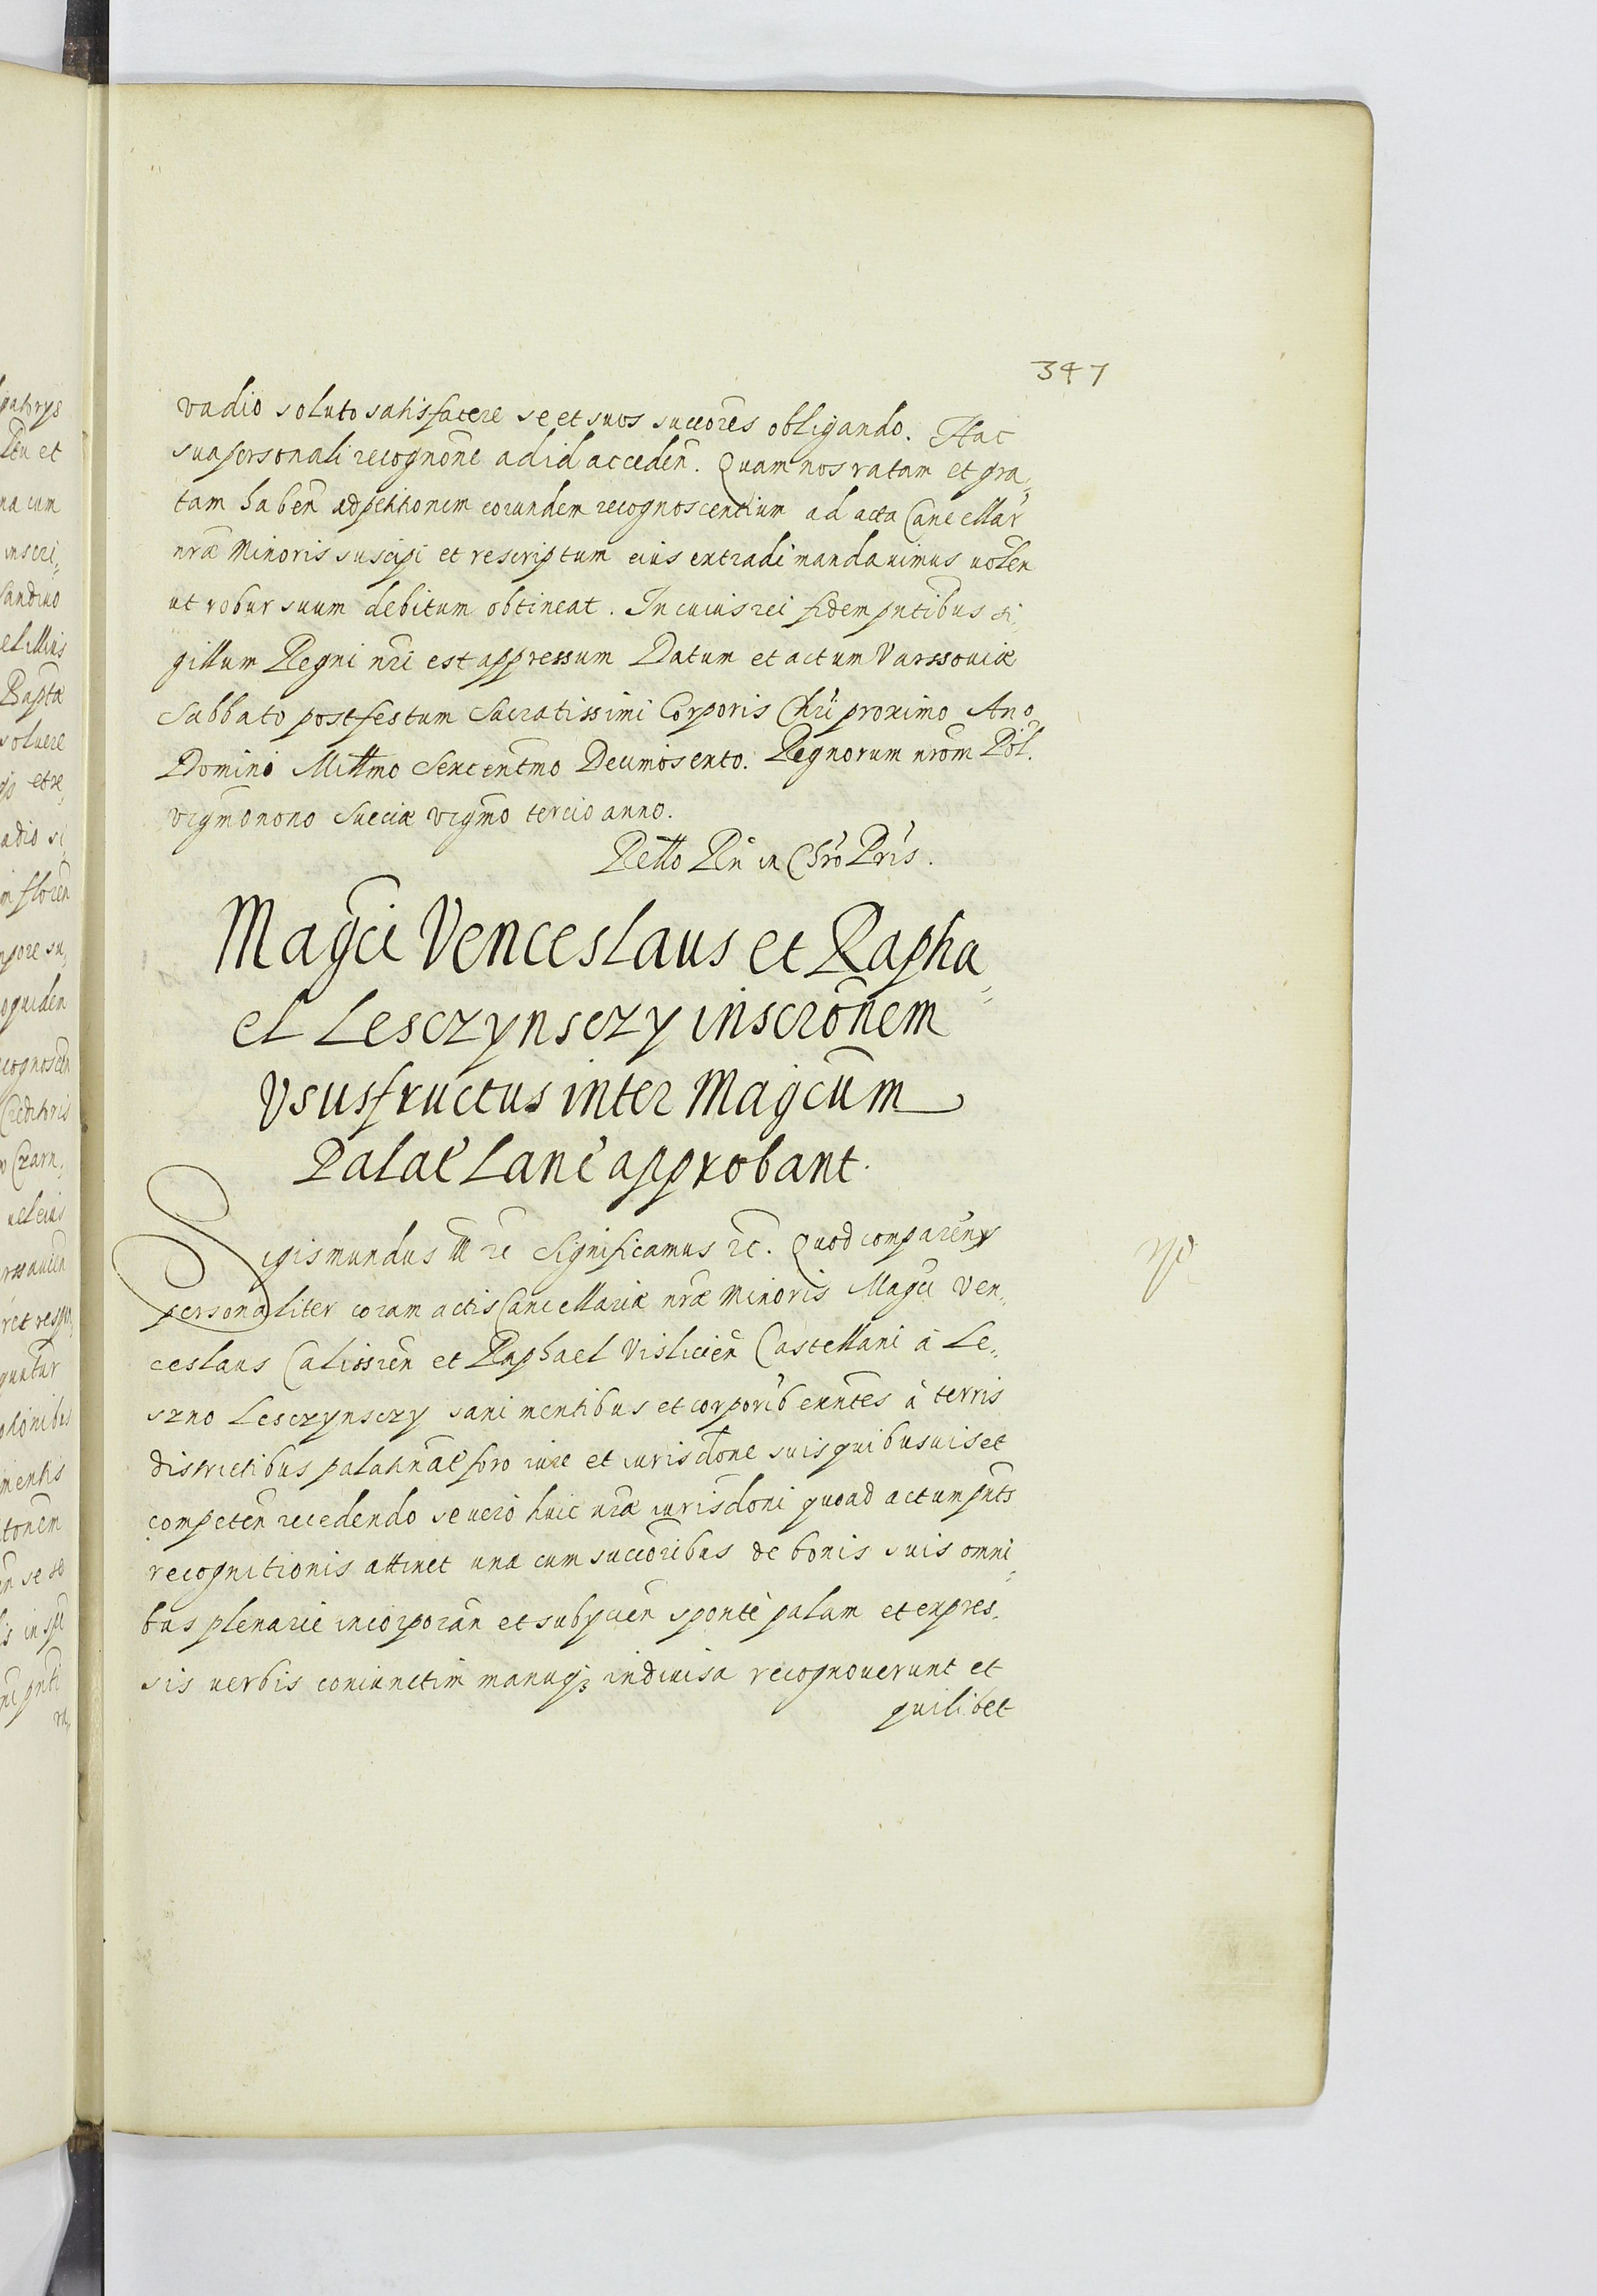 347
vadio soluto satisfacere se et suos succõres obligando. Hac
sua personali recognõne ad id acceden̄. Quam nos ratam et gra„
tam haben̄ ad petitionem eorundem recognoscentium ad acta Cancellar̄
nr̃æ Minoris suscipi et rescriptum eius extradi mandauimus uolen̄
ut robur suum debitum obtineat. In cuius rei fidem pñtibus si„
gillum Regni nr̃i est appressum Datum et actum Varssouiæ
Sabbato post festum Sacratissimi Corporis Chr̃i proximo Ano
Domini Millmo Sexcentmo Decimosexto. Regnorum nrõm Pol.
vigmõnono Sueciæ vigmõ tercio anno.
Retto Rñ in Chrõ Pr̃is.
Magci Venceslaus et Rapha„
el Lesczynsczy inscrõnem
Vsusfructus inter Magcum
Palaẽ Lanc̃ approbant.
Sigismundus III rc Significamus rc. Quod comparen̄s
personaliter coram actis Cancellariæ nr̃æ Minoris Magci Ven„
ceslaus Calissien̄ et Raphael Vislicien̄ Castellani à Le„
szno Lesczynsczy sani mentibus et corporib exñtes à terris
districtibus palatinãe foro iure et iurisdõne suis quibusuis et
competen̄ recedendo se uero huic nr̃æ iurisdõni quoad actum pñts
recognitionis attinet una cum succõribus de bonis suis omni„
bus plenarie incorporan̄ et subycien̄ sponte palam et expres„
sis uerbis coniunctim manuqȝ indiuisa recognouerunt et
quilibet